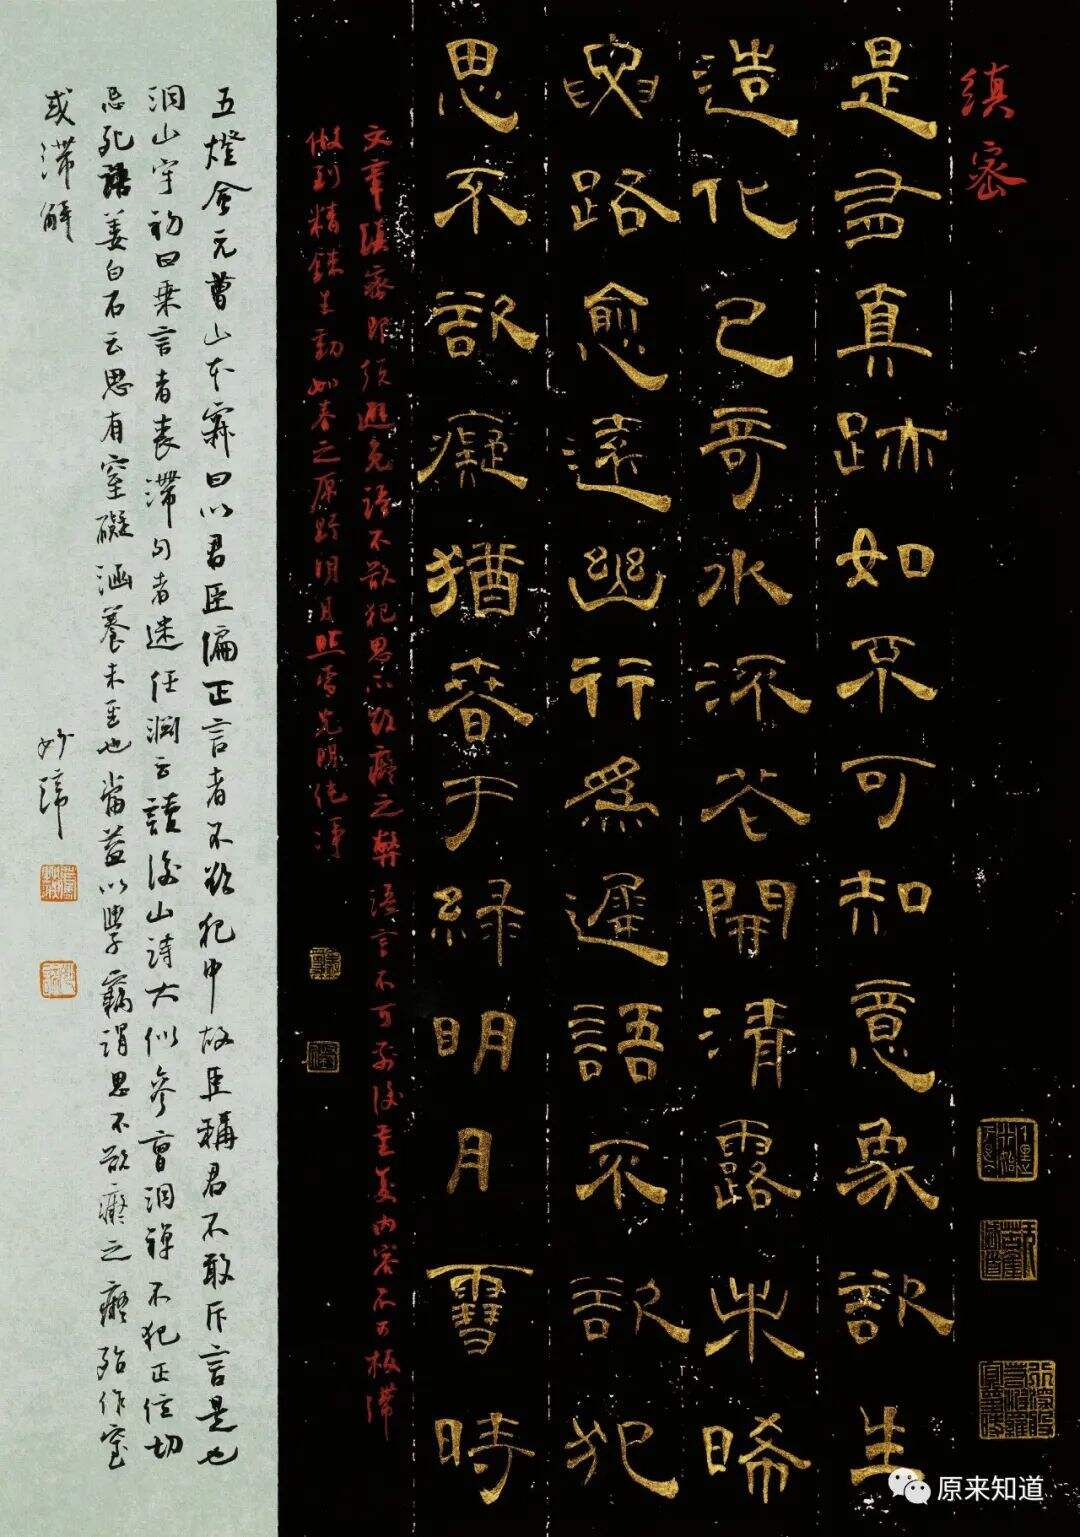 缜密
是尋真跡如不可知意象欲生
造化已奇水流花開清露未晞
要路愈遠幽行為遲語不欲犯
思不欲癡猶春于綠明月雪時
文章缜密即須避免語不欲犯思不欲癡之弊語言不可前後重复内容不可板滯
做到精鍊生動如春之原野明月照雪光明纯净
五燈會元曹山本寂曰以君臣偏正言者不欲犯中故臣稱君不敢斥言是也
洞山守初曰乘言者丧滯句者迷任淵云讀後山詩大似參曹洞禪不犯正位切
忌死語姜白石云思有窒礙涵養未至也當益以學竊謂思不欲癡之癡殆作窒
或滯解
妙諦
原来知道